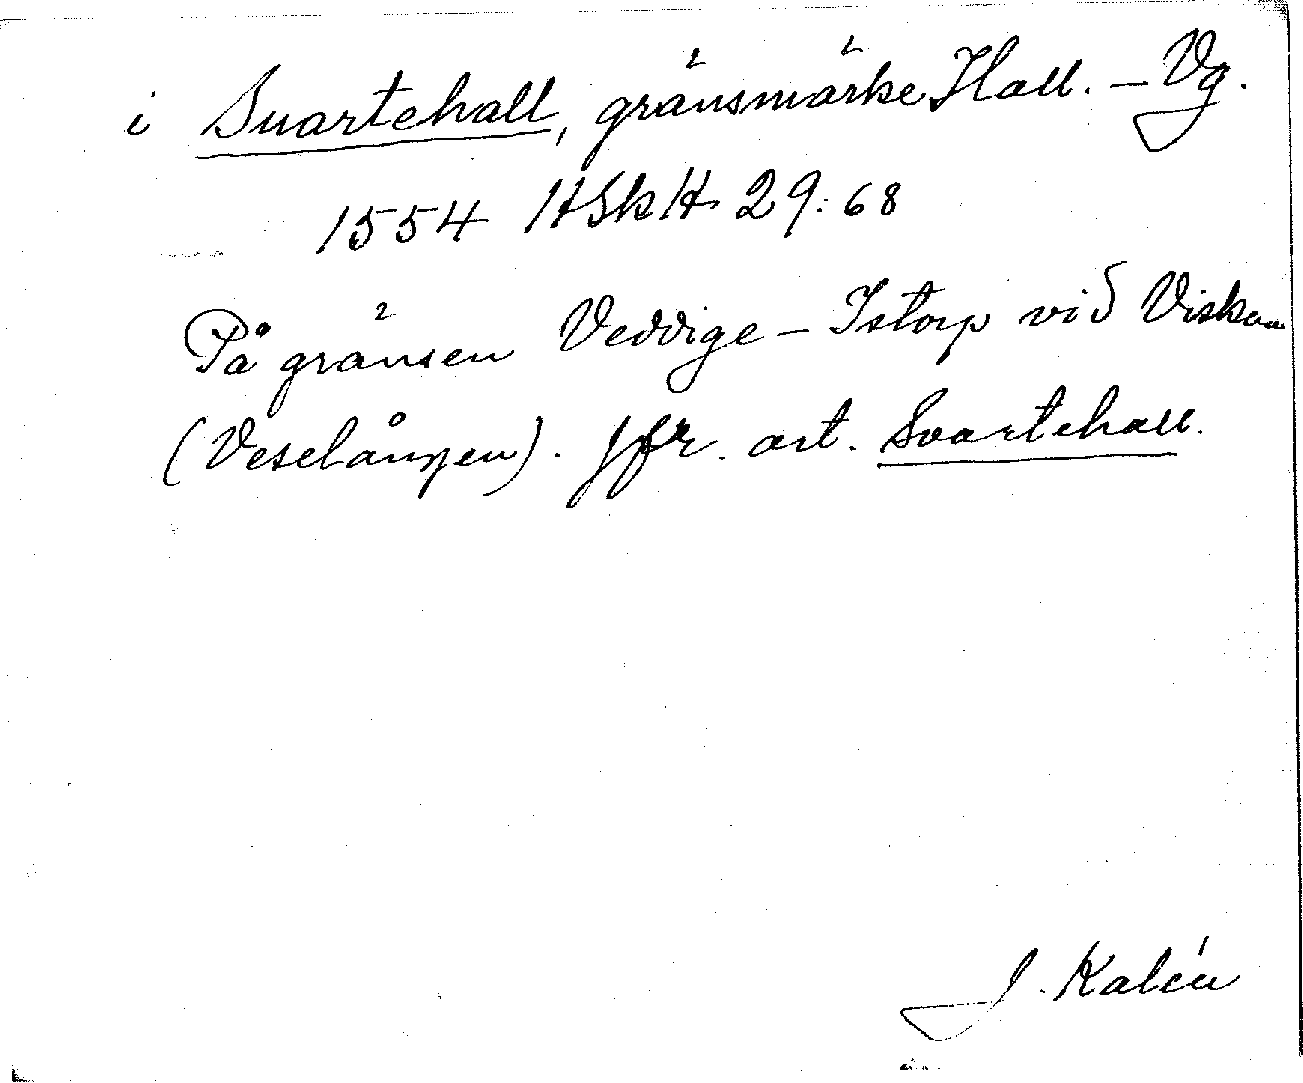 i Suartehall, gränsmärke Hall. – Vg.
1554 HSkH 29:68
På gränsen Veddige – Istorp vid Viskan
(Veselången). Jfr. art. Svartehall.
J. Kalén